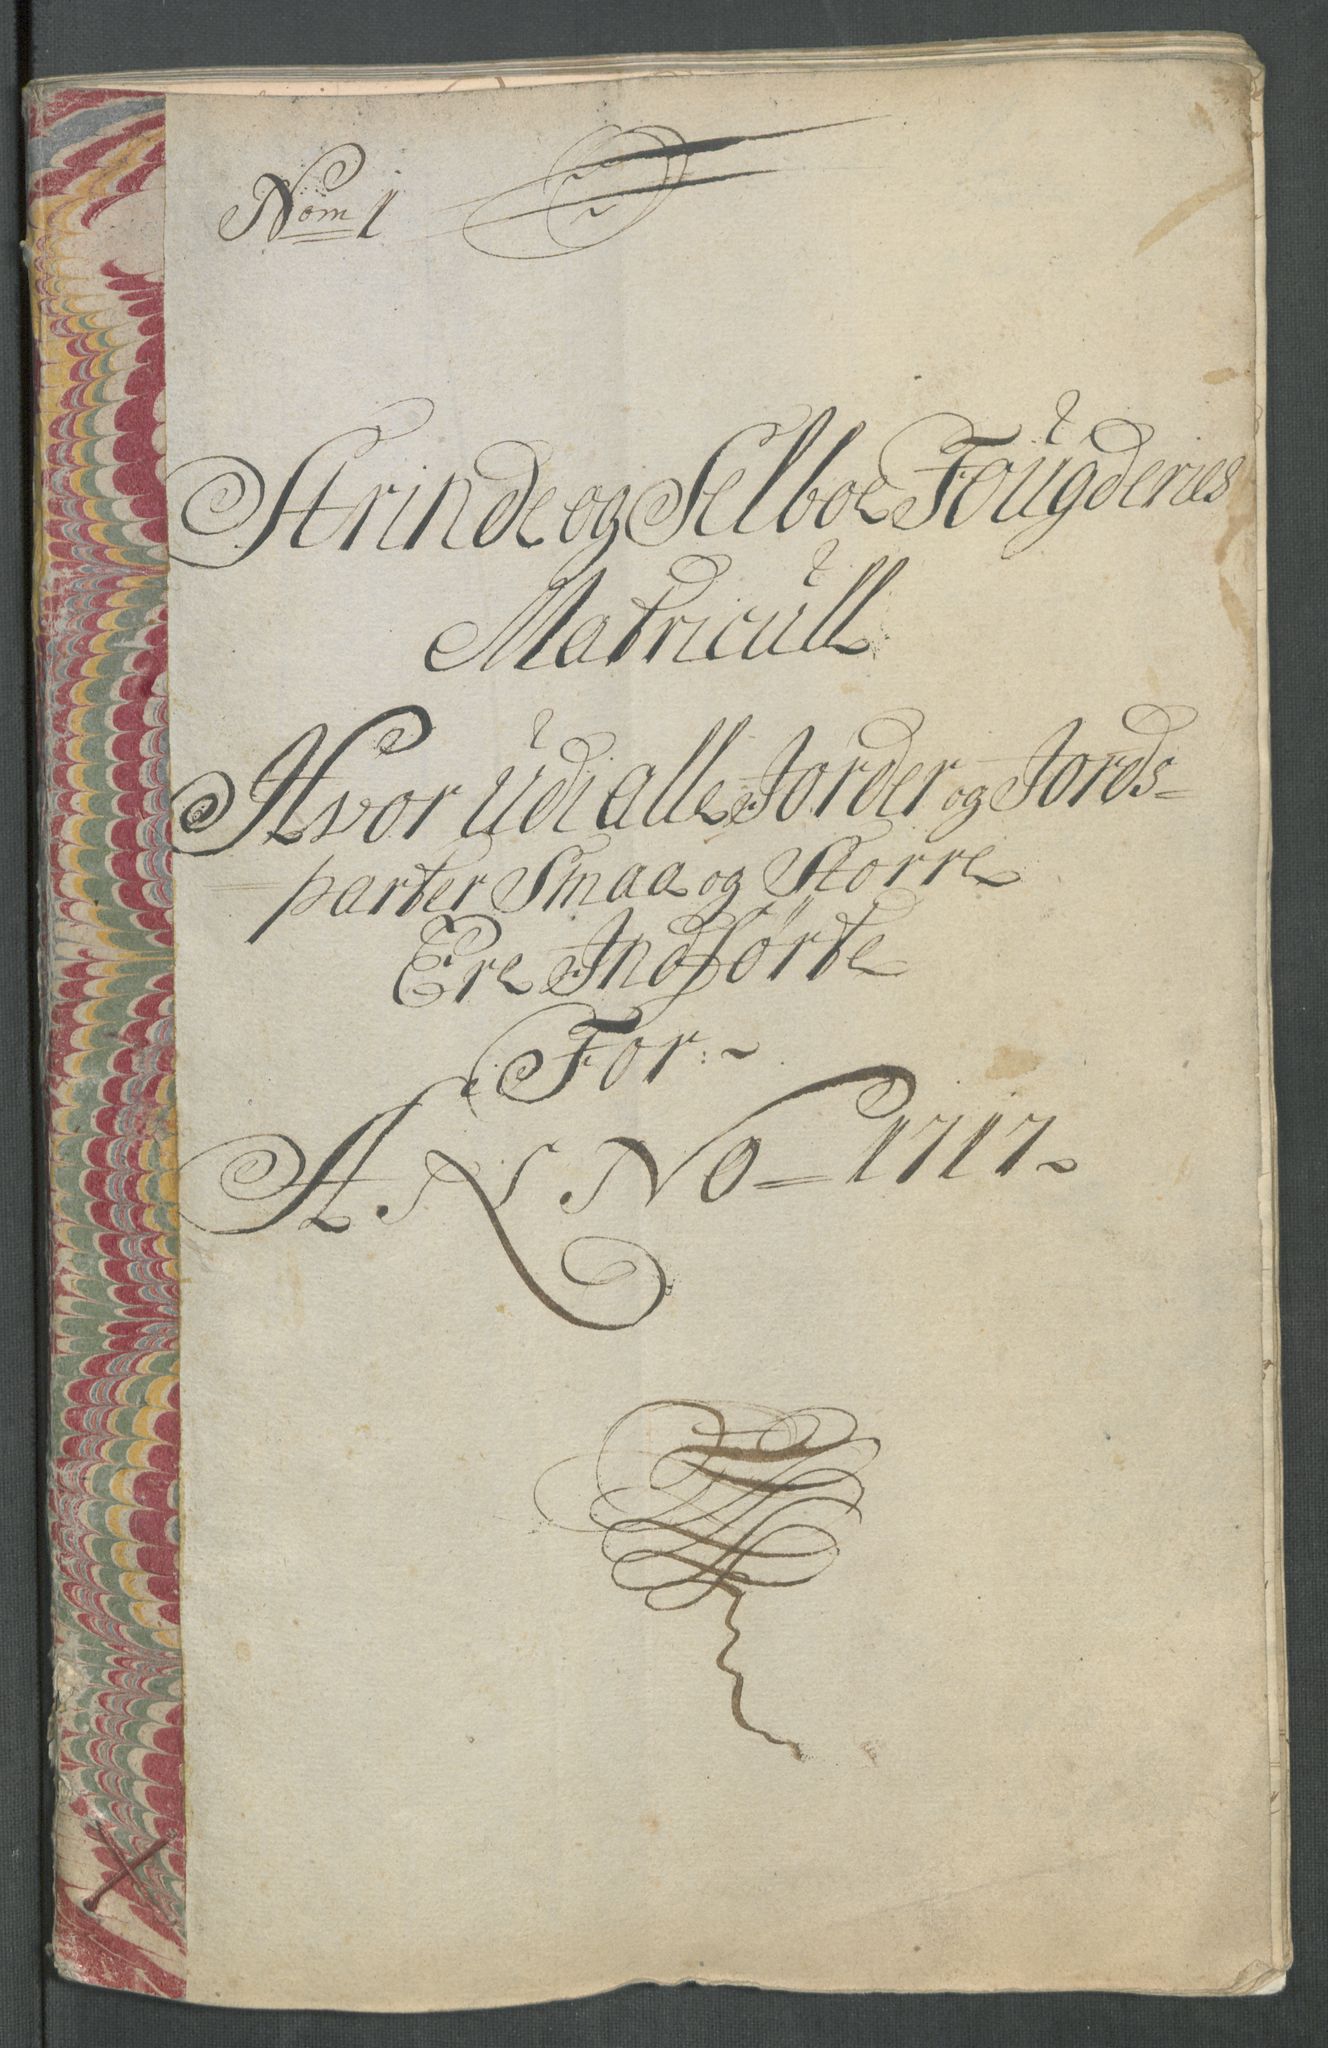 Nom 1
Strinde og Selboe Foŭgderies
Matricŭll
Hvor Ŭdi alle Jorder og Jords=
parter Smaa og Storre
Ere Indførte
For:~
ANNO = 1717~